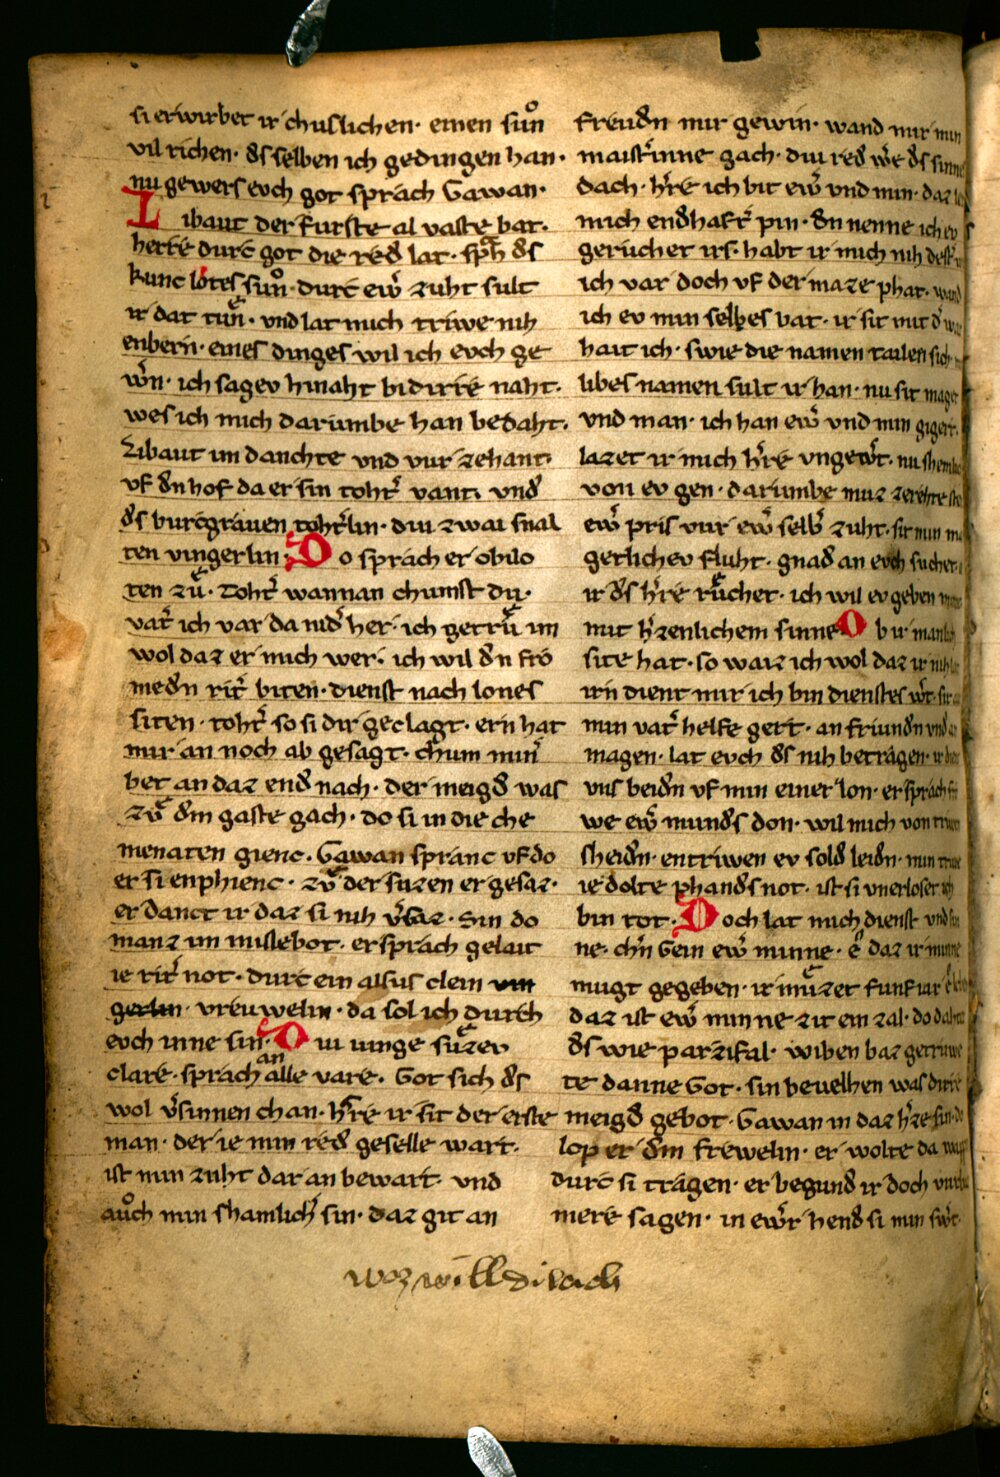 si erwirbet ir chuslichen · einen suͦn
vil richen · ds selben ich gedingen han ·
nu gewers evch got sprach Gawan ·
Libaut der furste al vaste bat ·
herre durc got die red lat · sprah ds
kunc lotes suͦn · durc ew̄ zuht sult
ir dat tuͤn · vnd lat mich triwe nih
enbern · eines dinges wil ich evch ge
w̄n · ich sagev hinaht bidirre naht ·
wes ich mich darumbe han bedaht ·
Libaut im danchte vnd vur zehant ·
vf dn hof da er sin toht̄ vant · vnd
ds burcgrauen toht̄lin · div zwai snal
ten vingerlin · Do sprach er obilo
ten zuͤ · Toht̄ wannan chumst du ·
vat̄ ich var da nid̄ her · ich getruͤ im
wol daz er mich wer · ich wil dn frō
medn rit̄ biten · dienst nach lones
siten · toht̄ so si dir geclagt · ern hat
mir an noch ab gesagt · chum min̄
bet an daz end nach · der meigd was
zuͤ dm gaste gach · do si in die che
menaten gienc · Gawan spranc vf do
er si enphienc · zuͤ der suzen er gesaz ·
er danct ir daz si nih v̄saz · Sin do
manz im missebot · er sprach gelait
ie rit̄ not · durc ein alsus clein vin
gerlin · vreuwelin · da sol ich durch
evch inne sin · Div iunge suͤzev
clare · sprach an alle vare · Got sich ds
wol v̄sinnen chan · h̄re ir sit der erste
man · der ie min red geselle wart ·
ist min zuht dar an bewart · vnd
auͦch min shamlich̄ sin · daz git an
freudn mir gewin · wand mir min
maist̄inne gach · div red w̄e ds sinne
dach · h̄re ich bit ew̄ vnd min · daz
mich endhaft̄ pin · dn nenne ich ev
gerucher irs · habt ir mich nih
ich var doch vf der maze phat · wand
ich ev min selbes bat · ir sit mit d̄
hait ich · swie die namen tailen sich ·
libes namen sult ir han · nu sit maget
vnd man · ich han ew̄ vnd min gigert ·
lazet ir mich h̄re vngew̄t · nu
von ev gen · darumbe muz zerehte
ew̄ pris vur ew̄ selb̄ zuht · sit min
gerlichev fluht · gnad an evch suchet ·
ir ds h̄re ruͤchet · ich wil ev geben
mit h̄zenlichem sinne Ob ir
site hat · so waiz ich wol daz ir
irn dient mir ich bin dienstes w̄t ·
min vat̄ helfe gert · an friundn vnd
magen · lat evch ds nih betragen ·
vns beidn vf min einet lon · er sprach
we ew̄ munds don · wil mich von
sheidn · entriwen ev sold leidn ·
ie dolte phands not · ist si vnerloset ich
bin tot · Doch lat mich dienst vnd
ne · ch̄n gein ew̄ minne · e daz ir minne
mugt gegeben · ir muͤzet funf iar
daz ist ew̄ minne zit ein zal · do
ds wie parzifal · wiben baz getruwe
te danne Got · sin bevelhen was dirre
meigd gebot · Gawan in daz h̄ze sin ·
lop er dm frewelin · er wolte da
durc si tragen · er begund ir doch
mere sagen · in ew̄r hend si min sw̄t ·